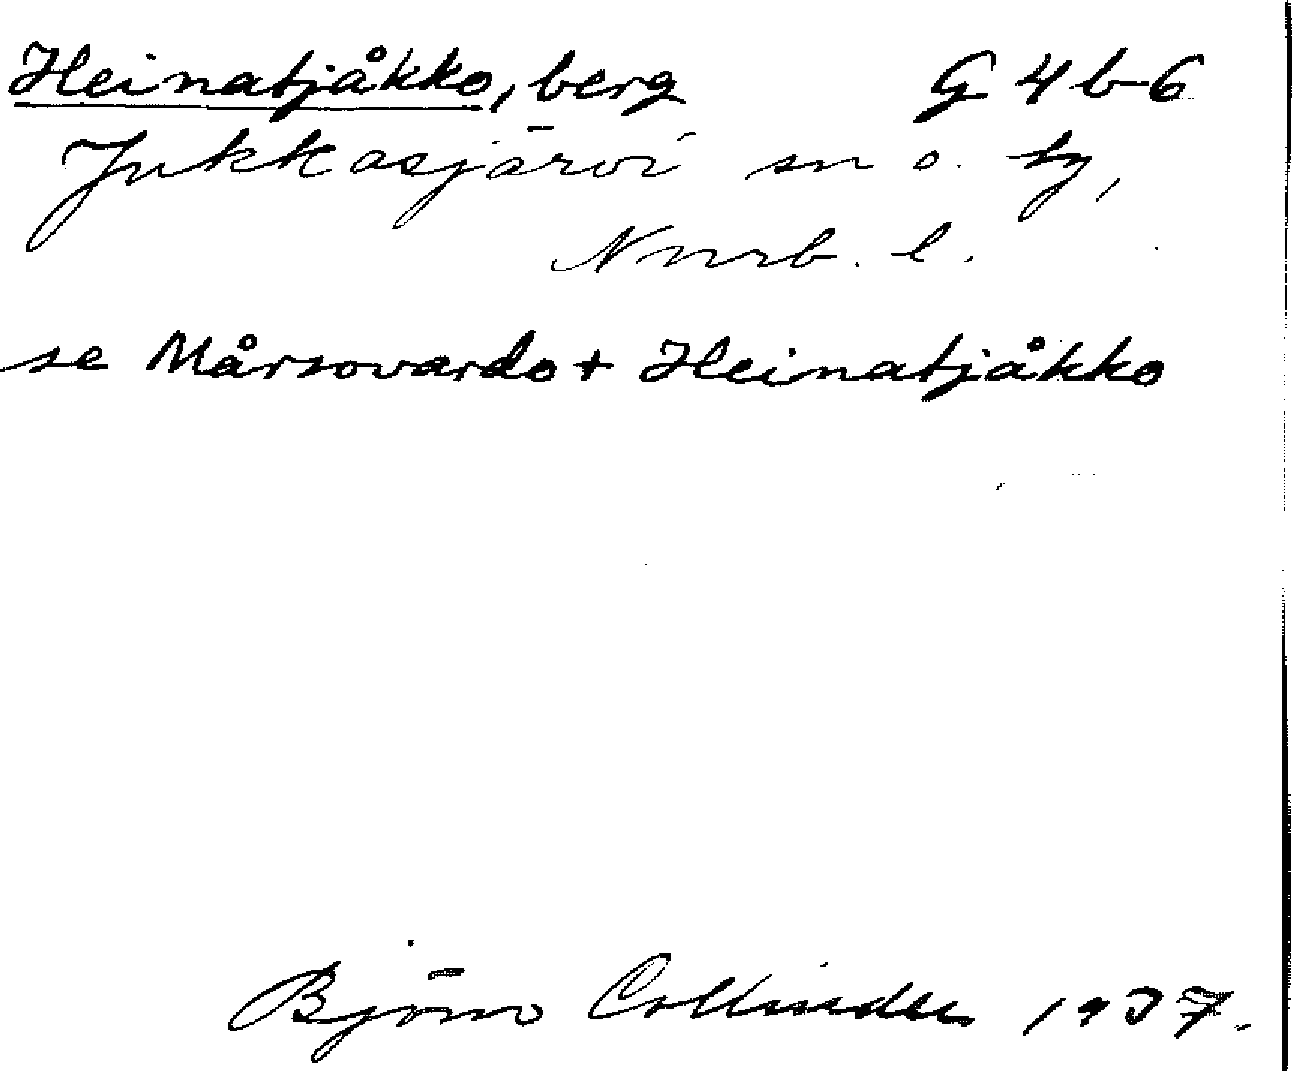 Heinatjåkko, berg G 4 b 6
Jukkasjärvi sn o. tg,
Nnrb. l.
se Mårsovardo + Heinatjåkko
Björn Collinder 1937.